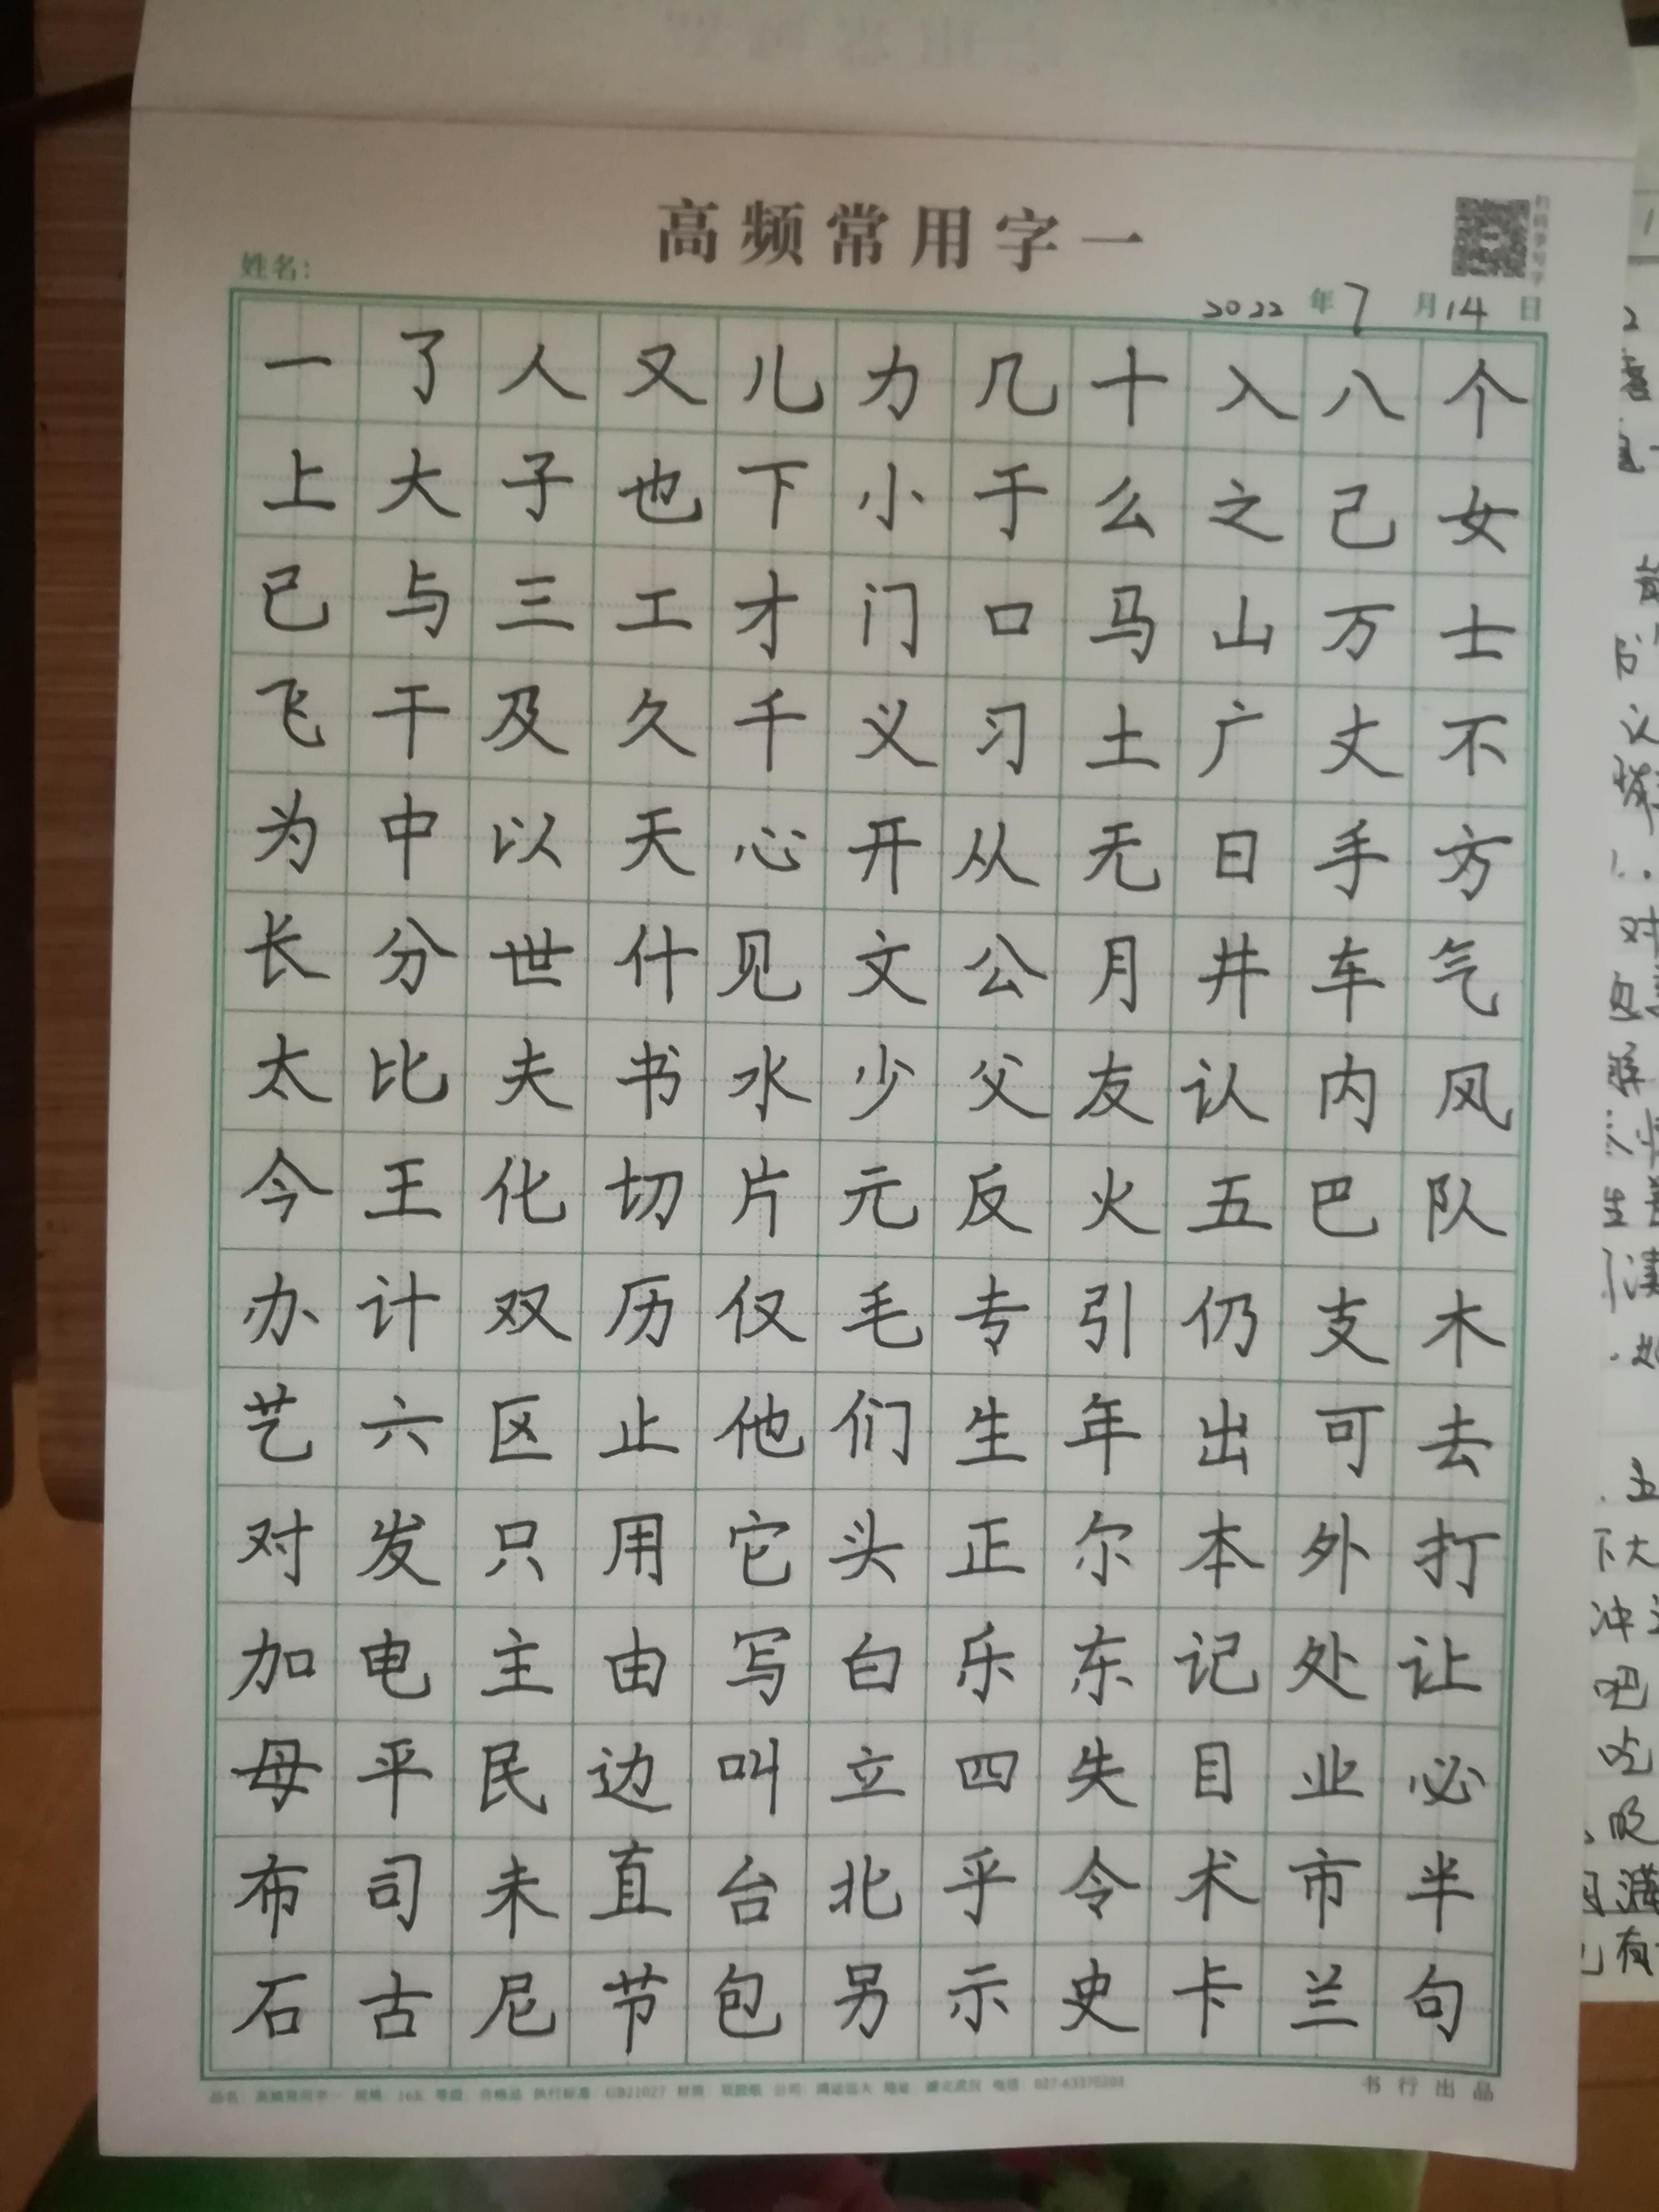 高频常用字一
姓名：
2022 年 7 月 14 日
一了人又儿力几十入八个
上大子也下小于么之己女
已与三工才门口马山万士
飞干及久千义习土广丈不
为中以天心开从无日手方
长分世什见文公月井车气
太比夫书水少父友认内风
今王化切片元反火五巴队
办计双历仅毛专引仍支木
艺六区止他们生年出可去
对发只用它头正尔本外打
加电主由写白乐东记处让
母平民边叫立四失目业必
布司未直台北乎令术市半
石古尼节包另示史卡兰句
书行出品